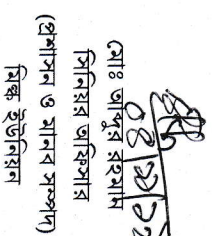 মোঃ আব্দুর রহমান
সিনিয়র অফিসার
(প্রশাসন ও মানব সম্পদ)
মিল্ক ইউনিয়ন